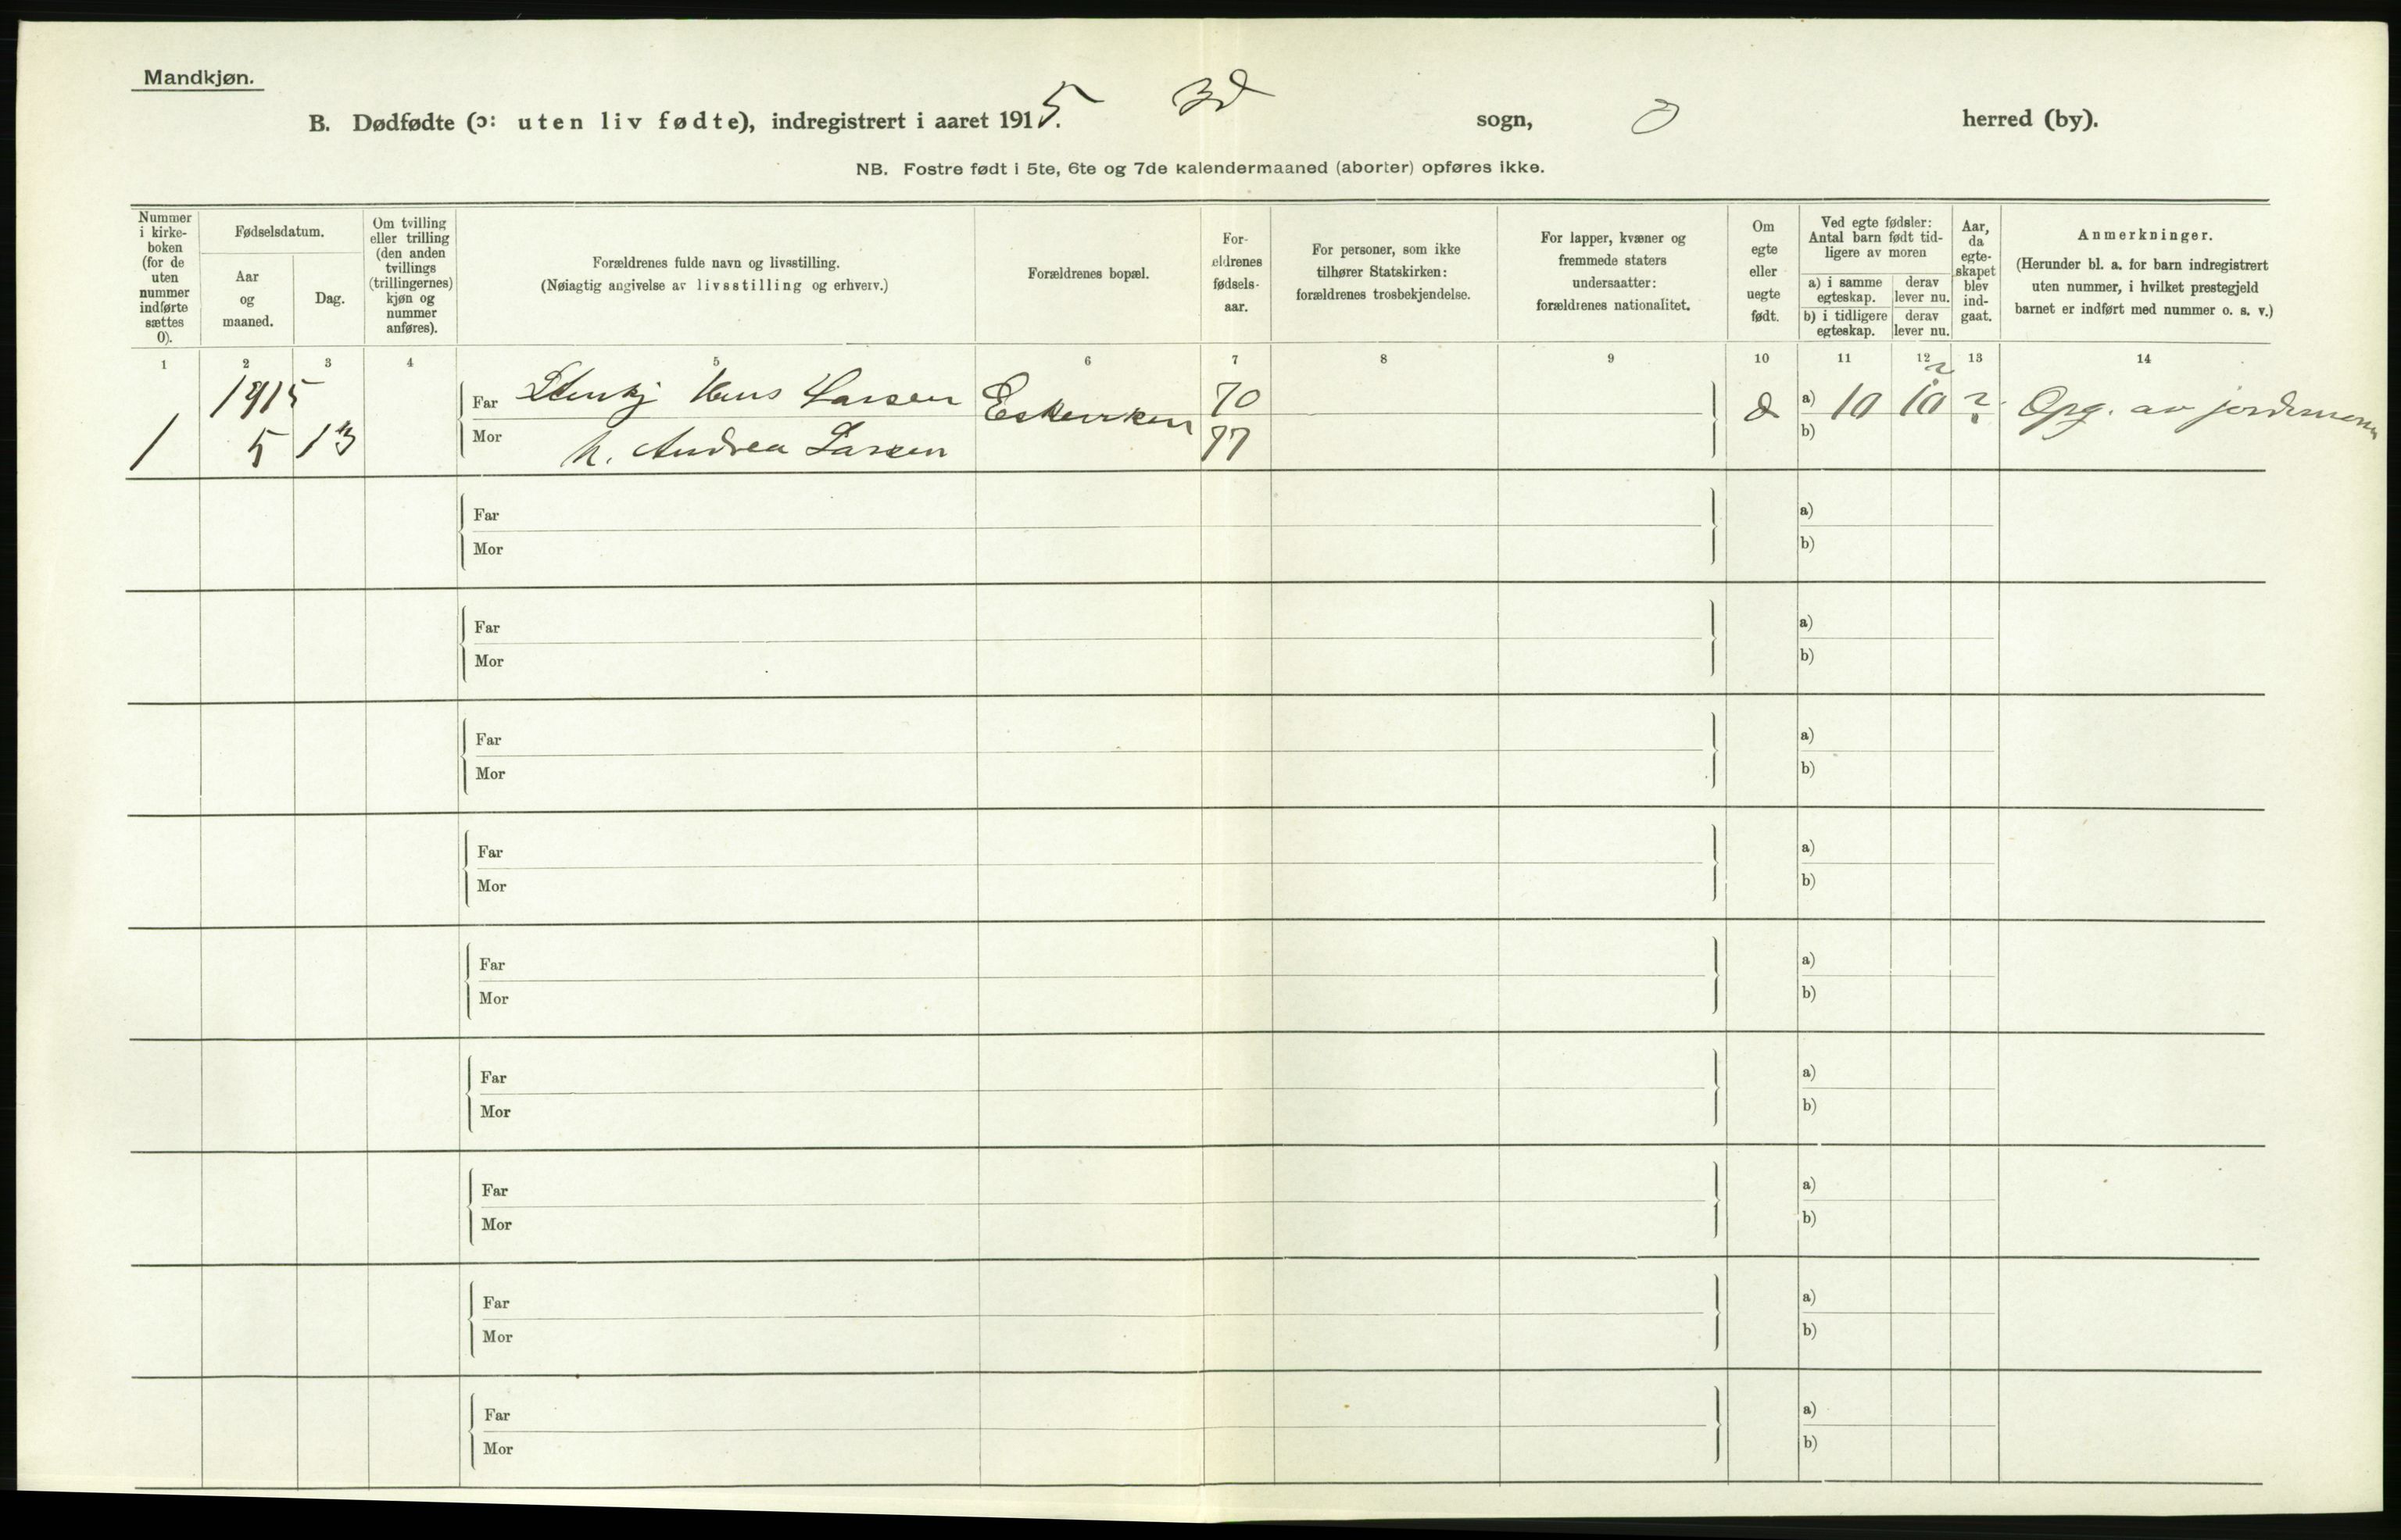 Mandkjøn.
B. Dødfødte (ɔ: uten liv fødte), indregistrert i aaret 1915. sogn, herred (by).
NB. Fostre født i 5te, 6te og 7de kalendermaaned (aborter) opføres ikke.
Nummer i kirke- boken (for de uten nummer indførte sættes 0).
Fødselsdatum.
Aar og maaned.
Dag.
Om tvilling eller trilling (den anden tvillings (trillingernes) kjøn og nummer anføres).
Forældrenes fulde navn og livsstilling.
(Nøiagtig angivelse av livsstilling og erhverv.)
Forældrenes bopæl.
For- ældrenes fødsels- aar.
For personer, som ikke tilhører Statskirken: forældrenes trosbekjendelse.
For lapper, kvæner og fremmede staters undersaatter: forældrenes nationalitet.
Om egte eller uegte født.
Ved egte fødsler: Antal barn født tid- ligere av moren
a) i samme egteskap.
derav lever nu.
b) i tidligere egteskap.
derav lever nu.
Aar, da egte- skapet blev ind- gaat.
Anmerkninger.
(Herunder bl. a. for barn indregistrert uten nummer, i hvilket prestegjeld barnet er indført med nummer o. s. v.)
1 2 3 4 5 6 7 8 9 10 11 12 13 14
1915
Far Hans Larsen 70 a) 10 10 ? Opg. av jordemoren
1 5 13 Mor h. Andrea Larsen 77 b)
Far a)
Mor b)
Far a)
Mor b)
Far a)
Mor b)
Far a)
Mor b)
Far a)
Mor b)
Far a)
Mor b)
Far a)
Mor b)
Far a)
Mor b)
Far a)
Mor b)